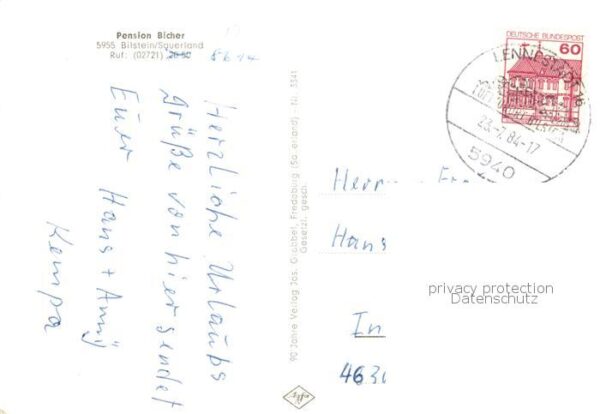 Pension Bicher
5955 Bilstein/Sauerland
Ruf: (02721) 20 50 8614
Herzliche Urlaubs
Grüße von hier sendet
Euer Hans + Anny
Kempa
90 Jahre Verlag Jos. Grobbel, Fredeburg (Sauerland), Nr. 5541
Gesetzl. gesch.
DEUTSCHE BUNDESPOST
60
LENNESTADT 16
23.-7.84-17
5940
Herrn Fr
Hans
privacy protection
Datenschutz
In
463